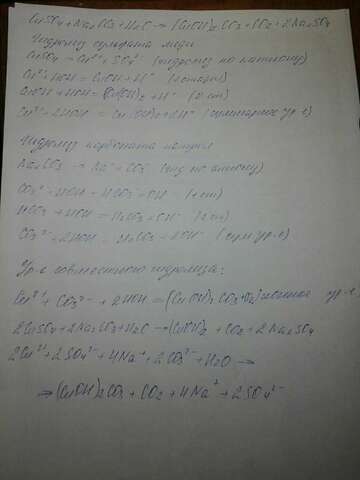 CuSO4 + Na2CO3 + H2O → (CuOH)2CO3 + CO2 + 2Na2SO4
Гидролиз сульфата меди
CuSO4 → Cu²⁺ + SO4²⁻ (гидролиз по катиону)
Cu²⁺ + HOH = CuOH + H⁻ (1 ступень)
CuOH + HOH = Cu(OH)2 + H⁻ (2 ст)
Cu²⁺ + 2HOH = Cu(OH)2 + 2H⁺ (суммарное ур-е)
Гидролиз карбоната натрия
Na2CO3 → Na⁺ + CO3²⁻ (гид по аниону)
CO3²⁻ + HOH = HCO3 + OH⁻ (1 ст)
HCO3 + HOH = H2CO3 + OH⁻ (2 ст)
CO3²⁻ + 2HOH = H2CO3 + 2OH⁻ (сум ур-е)
Ур-е совместного гидролиза:
Cu²⁺ + CO3²⁻ + 2HOH = (CuOH)2CO3 + CO2 ионное ур-е
2CuSO4 + 2Na2CO3 + H2O → (CuOH)2 + CO2 + 2Na2SO4
2Cu²⁺ + 2SO4²⁻ + 4Na⁺ + 2CO3²⁻ + H2O →
→ (CuOH)2CO3 + CO2 + 4Na² + 2SO4²⁻